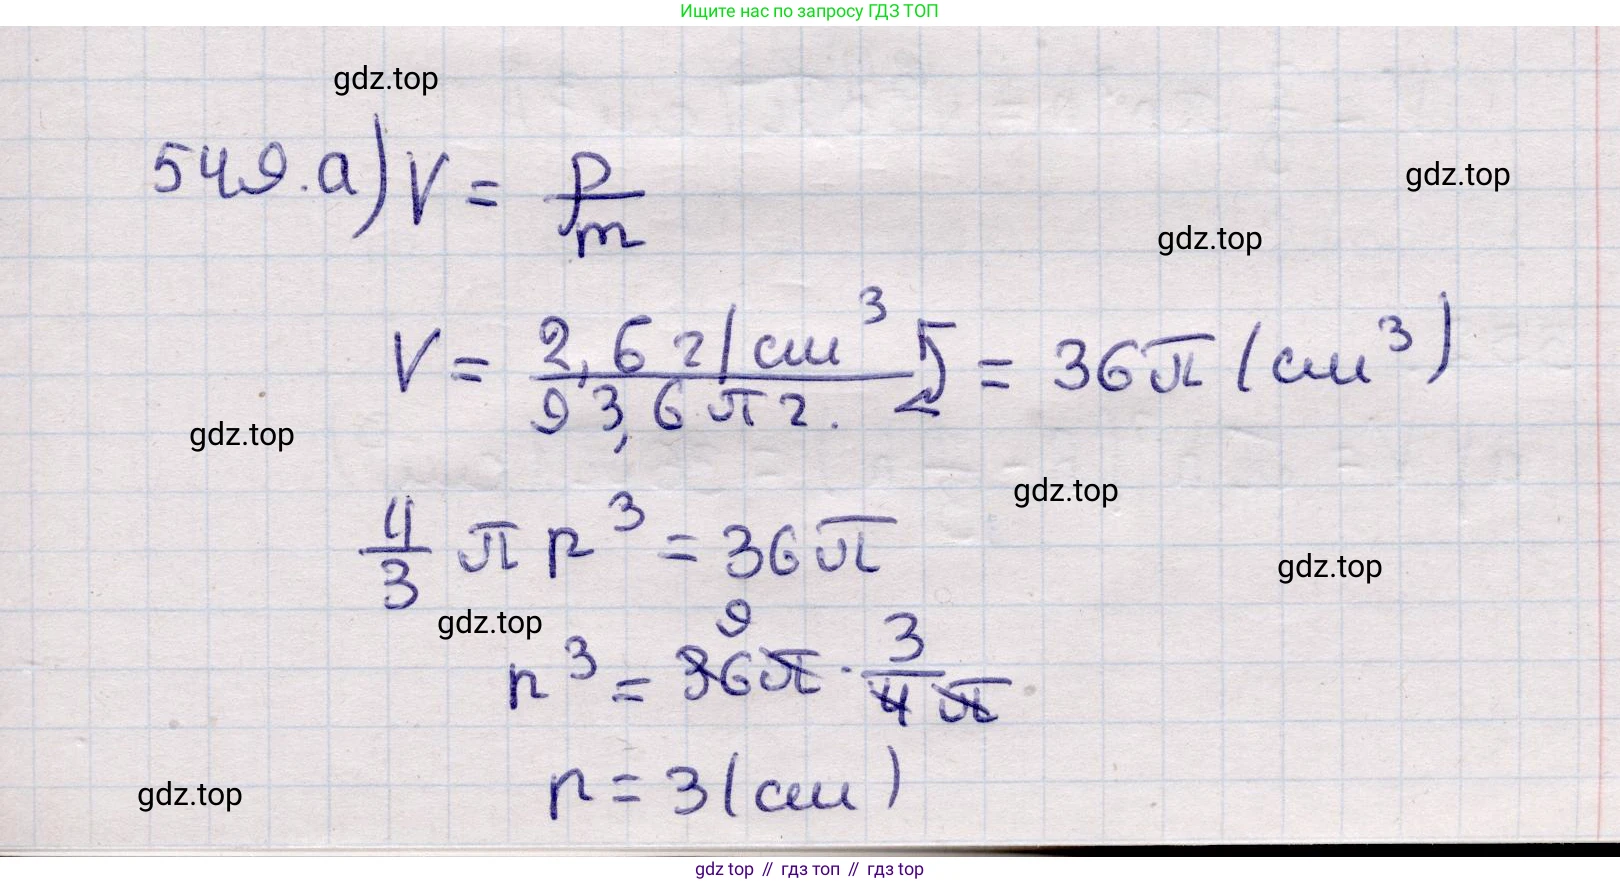 Ищите нас по запросу ГДЗ ТОП
gdz.top
549.а) V = p/m
gdz.top
gdz.top
V = 2,6 г/см³ / 93,6 π г. = 36π (см³)
gdz.top
gdz.top
4/3 π r³ = 36π
gdz.top
gdz.top
9
r³ = 36π · 3/4π
r = 3 (см)
gdz.top
gdz top // гдз топ // gdz top